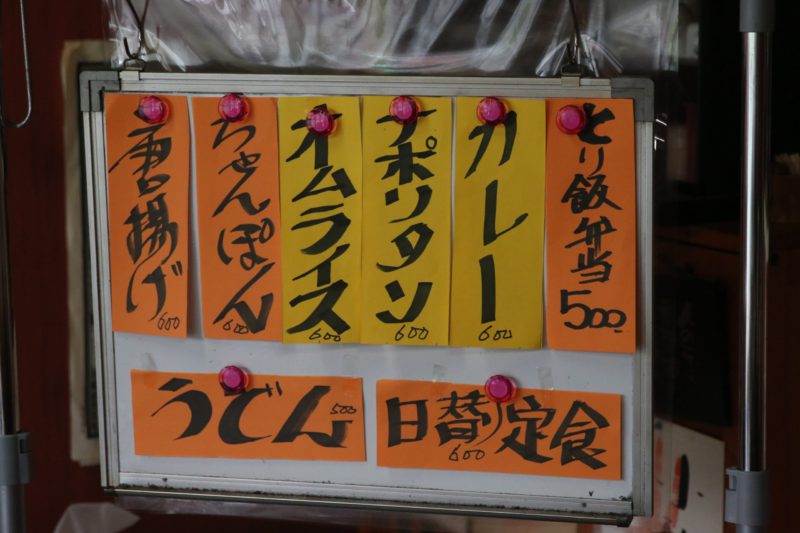 とり飯弁当
500
カレー
600
ナポリタン
600
オムライス
600
ちゃんぽん
600
唐揚げ
600
うどん
500
日替り定食
600